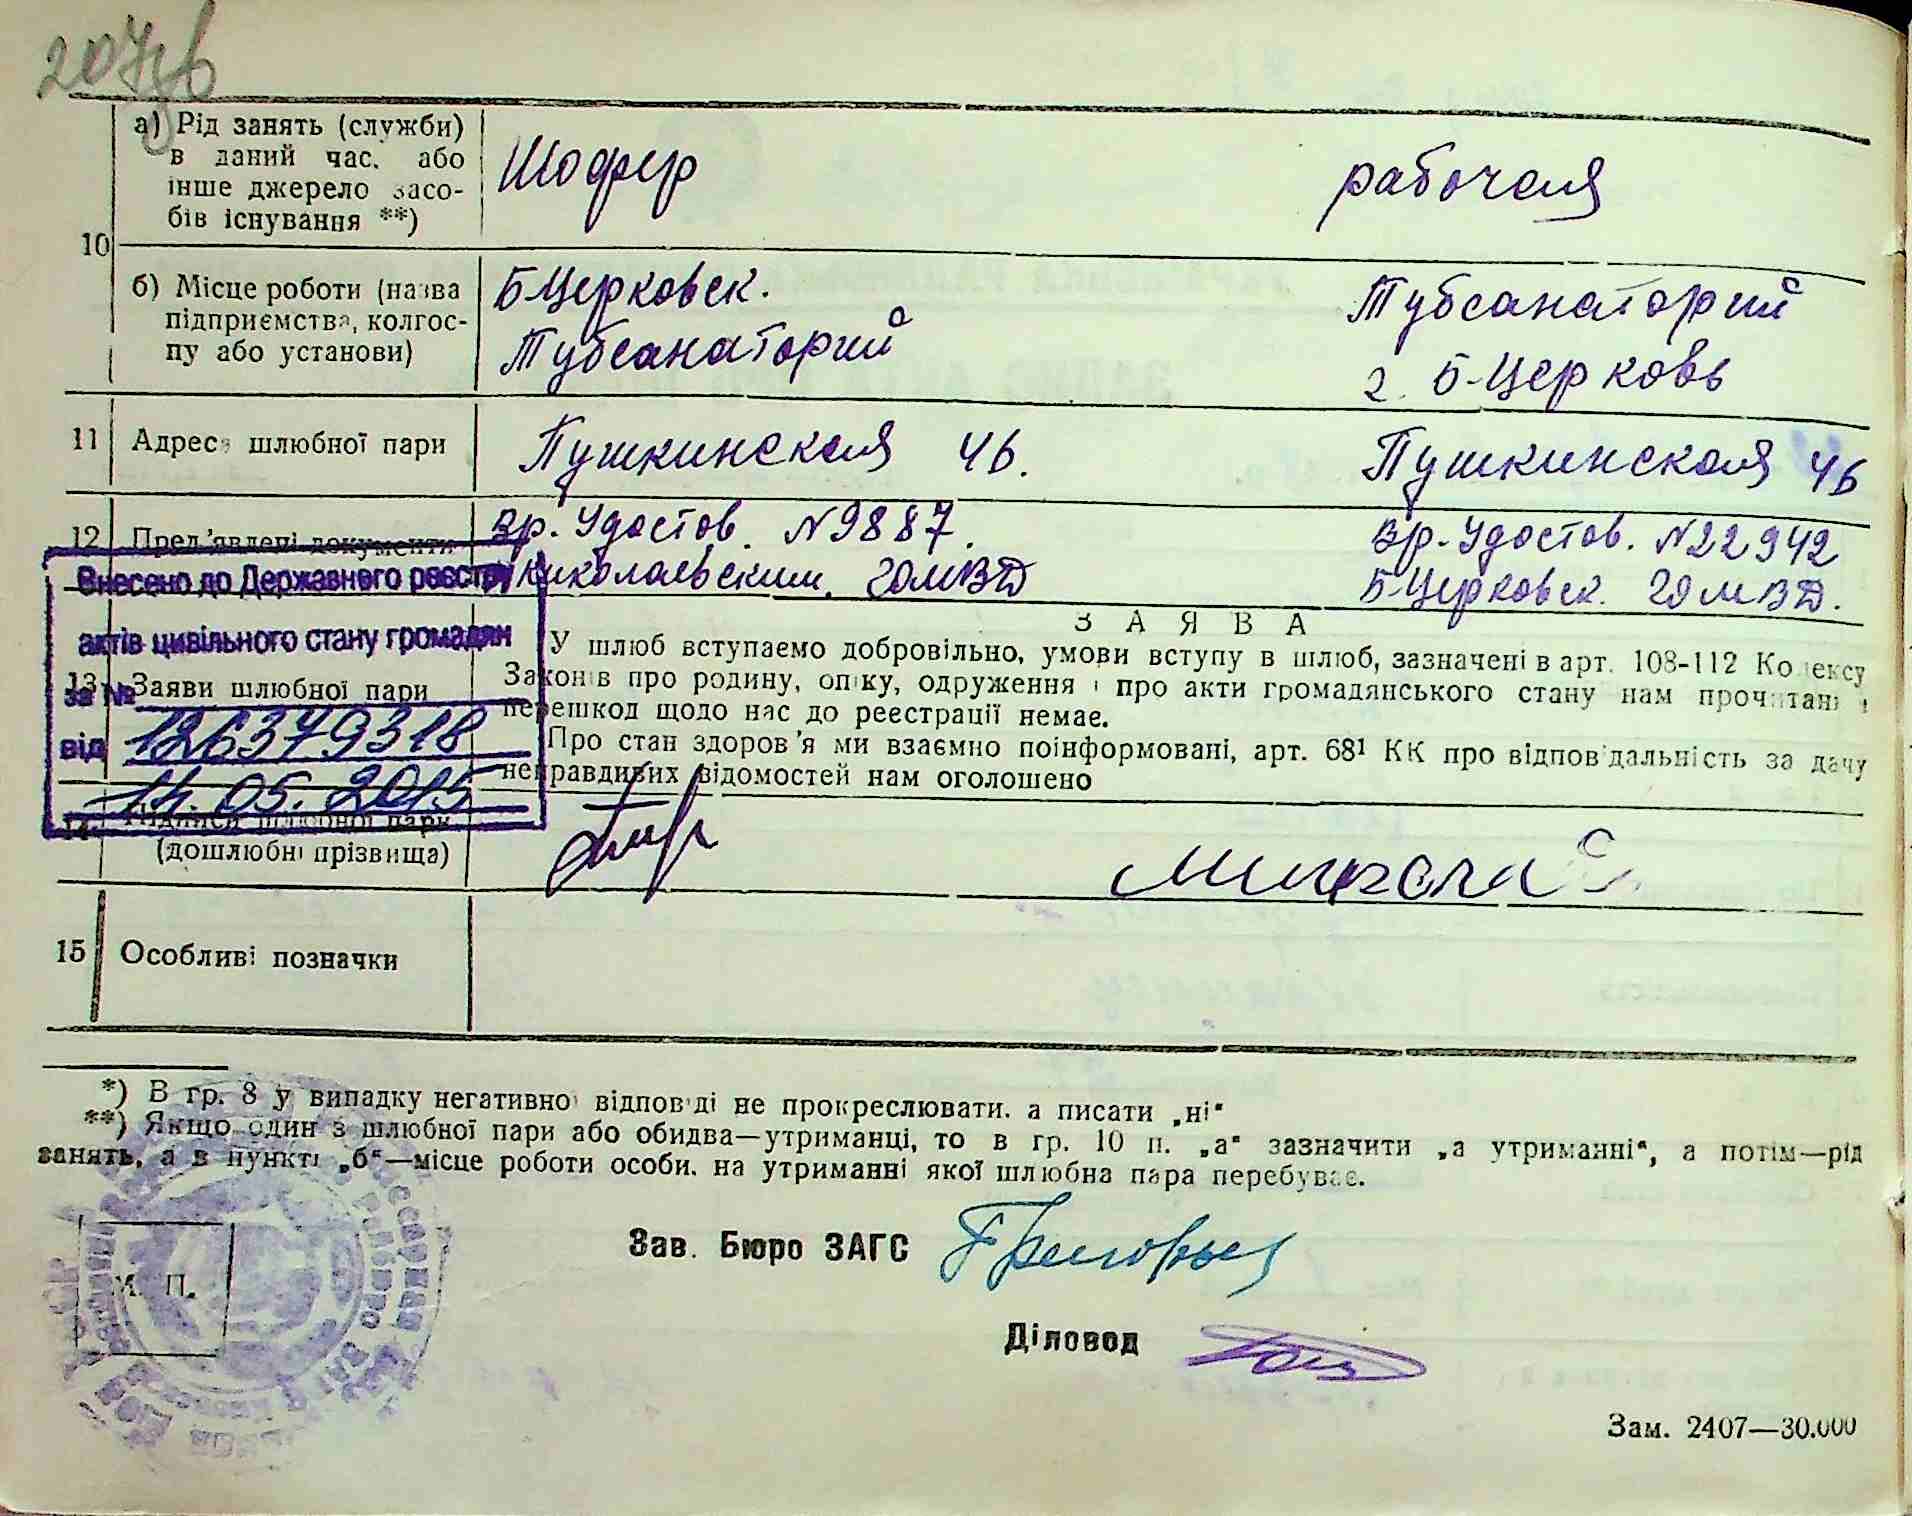 а) Рід занять (служби)
в даний час, або
інше джерело засо-
бів існування **)
Шофер
рабочая
10
б) Місце роботи (назва
підприємства, колгос-
пу або установи)
БЦерковск.
Тубсанаторий
Тубсанаторий
г. Б-Церковь
11 Адреса шлюбної пари
Пушкинская 46.
Пушкинская 46
12 Пред'явлені документи
Вр. Удостов. N9887.
Николаевским. ГОМВД
Вр. Удостов. N22942
Б-Церковск. ГОМВД.
Внесено до Державного реєстру
актів цивільного стану громадян
за № 126379318
від 14.05.2015
13 Заяви шлюбної пари
ЗАЯВА
У шлюб вступаємо добровільно, умови вступу в шлюб, зазначені в арт. 108-112 Кодексу
Законів про родину, опіку, одруження і про акти громадянського стану нам прочитані і
перешкод щодо нас до реєстрації немає.
Про стан здоров'я ми взаємно поінформовані, арт. 68¹ КК про відповідальність за дачу
неправдивих відомостей нам оголошено
14 Підписи шлюбної пари
(дошлюбні прізвища)
15 Особливі позначки
*) В гр. 8 у випадку негативної відповіді не прокреслювати, а писати „ні“
**) Якщо один з шлюбної пари або обидва—утриманці, то в гр. 10 п. „а“ зазначити „а утриманні“, а потім—рід
занять, а в пункті „б“—місце роботи особи, на утриманні якої шлюбна пара перебуває.
М. П.
Зав. Бюро ЗАГС
Діловод
Зам. 2407—30.000